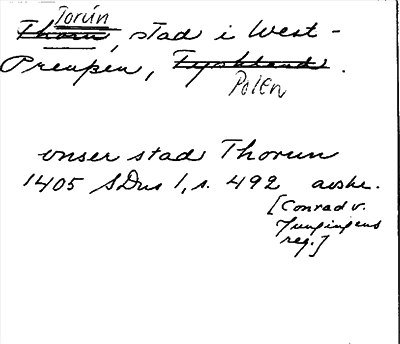 Torún
Thorn, stad i West-
Preuβen, Tyskland.
Polen
vnser stad Thorun
1405 SDns 1, s. 492 avskr.
[Conrad v.
Jungingens
reg.]